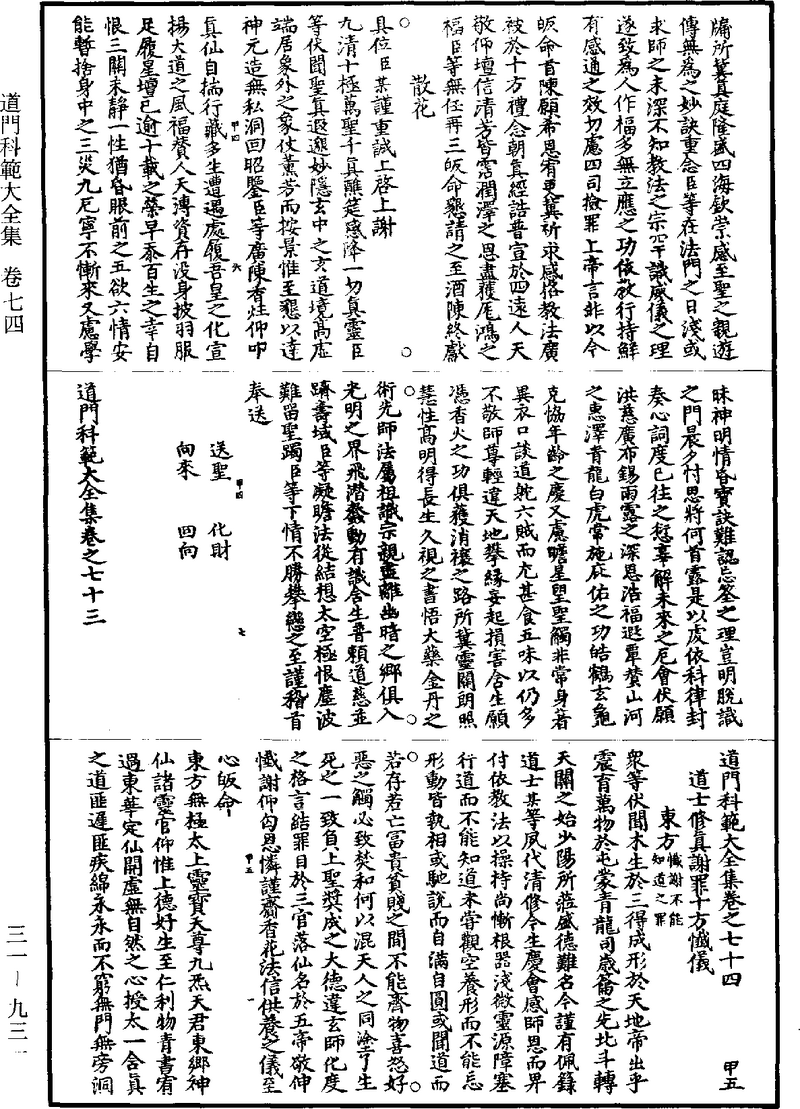 道門科範大全集　卷七四
牖所冀真庭隆盛四海欽崇感至聖之親遊
傳無為之妙訣重念臣等在法門之日淺或
求師之未深不知教法之宗罕識威儀之理
遂致為人作福多無立應之功依敎行持鮮
有感通之效切慮四司檢罪上帝言非以今
皈命首陳願希恩宥更冀祈求感格教法廣
被於十方禮念朝真經誥普宣於四遠人天
敬仰壇信清芳皆霑潤澤之恩盡獲厖鴻之
福臣等無任再三皈命懇請之至酒陳終獻
散花
具位臣某謹重誠上啓上謝
九清十極萬聖千真醮筵感降一切真靈臣
等伏聞聖真遐邈妙隱玄中之玄道境高虛
端居象外之象伏薰芳而按景惟至懇以達
神元造無私洞回昭鑒臣等廣陳香炷仰叩
甲四
六
真仙自揣行藏多生遭遇處履吾皇之化宣
揚大道之風福贊人天溥資存没身披羽服
足履星壇已逾十載之榮早忝百生之幸自
恨三關未靜一性猶昏眼前之五欲六情安
能暫捨身中之三災九厄寧不慚來又慮學
昧神明情昏寶訣難認忘筌之理豈明脫識
之門晨夕忖思將何首露是以虔依科律封
奏心詞度已往之愆辜解未來之厄會伏願
洪慈廣布錫雨露之深恩浩福遐覃贊山河
之惠澤青龍白虎常施庇佑之功皓鶴玄龜
克協年齡之慶又慮瞻星望聖觸非常身著
異衣口談道躭六賊而尤甚食五味以仍多
不敬師尊輕違天地攀緣妄起損害含生願
憑香火之功俱獲消禳之路所冀靈關朗照
慧性高明得長生久視之書悟大藥金丹之
術先師法屬祖識宗親盡離幽暗之鄉俱入
光明之界飛潛蠢動有識含生普賴道慈並
躋壽域臣等凝瞻法從結想太空極恨塵波
難留聖躅臣等下情不勝攀戀之至謹稽首
奉送
甲四
七
送聖　化財
向來　回向
道門科範大全集卷之七十三
道門科範大全集卷之七十四　甲五
道士修真謝罪十方懺儀
東方懺謝不能知道之罪
衆等伏聞木生於三得成形於天地帝出乎
震育萬物於屯蒙青龍司歲籥之先北斗轉
天關之始少陽所蒞盛德難名今謹有佩籙
道士某等夙代清修今生慶會感師恩而畀
付依教法以操持尚慚根器淺微靈源障塞
行道而不能知道未嘗觀空養形而不能忘
形動皆執相或馳說而自滿自圓或聞道而
若存若亡富貴貧賤之間不能齊物喜怒好
惡之觸必致焚和何以混天人之同塗了生
死之一致負上聖獎成之大德違玄師化度
之格言結罪目於三官落仙名於五帝敬伸
懺謝仰匃恩憐謹齎香花法信供養之儀至
甲五
一
心皈命
東方無極太上靈寶天尊九炁天君東鄉神
仙諸靈官仰惟上德好生至仁利物青書宥
過東華定仙開虛無自然之心授太一含真
之道匪遲匪疾綿永永而不窮無門無旁洞
三一－九三一